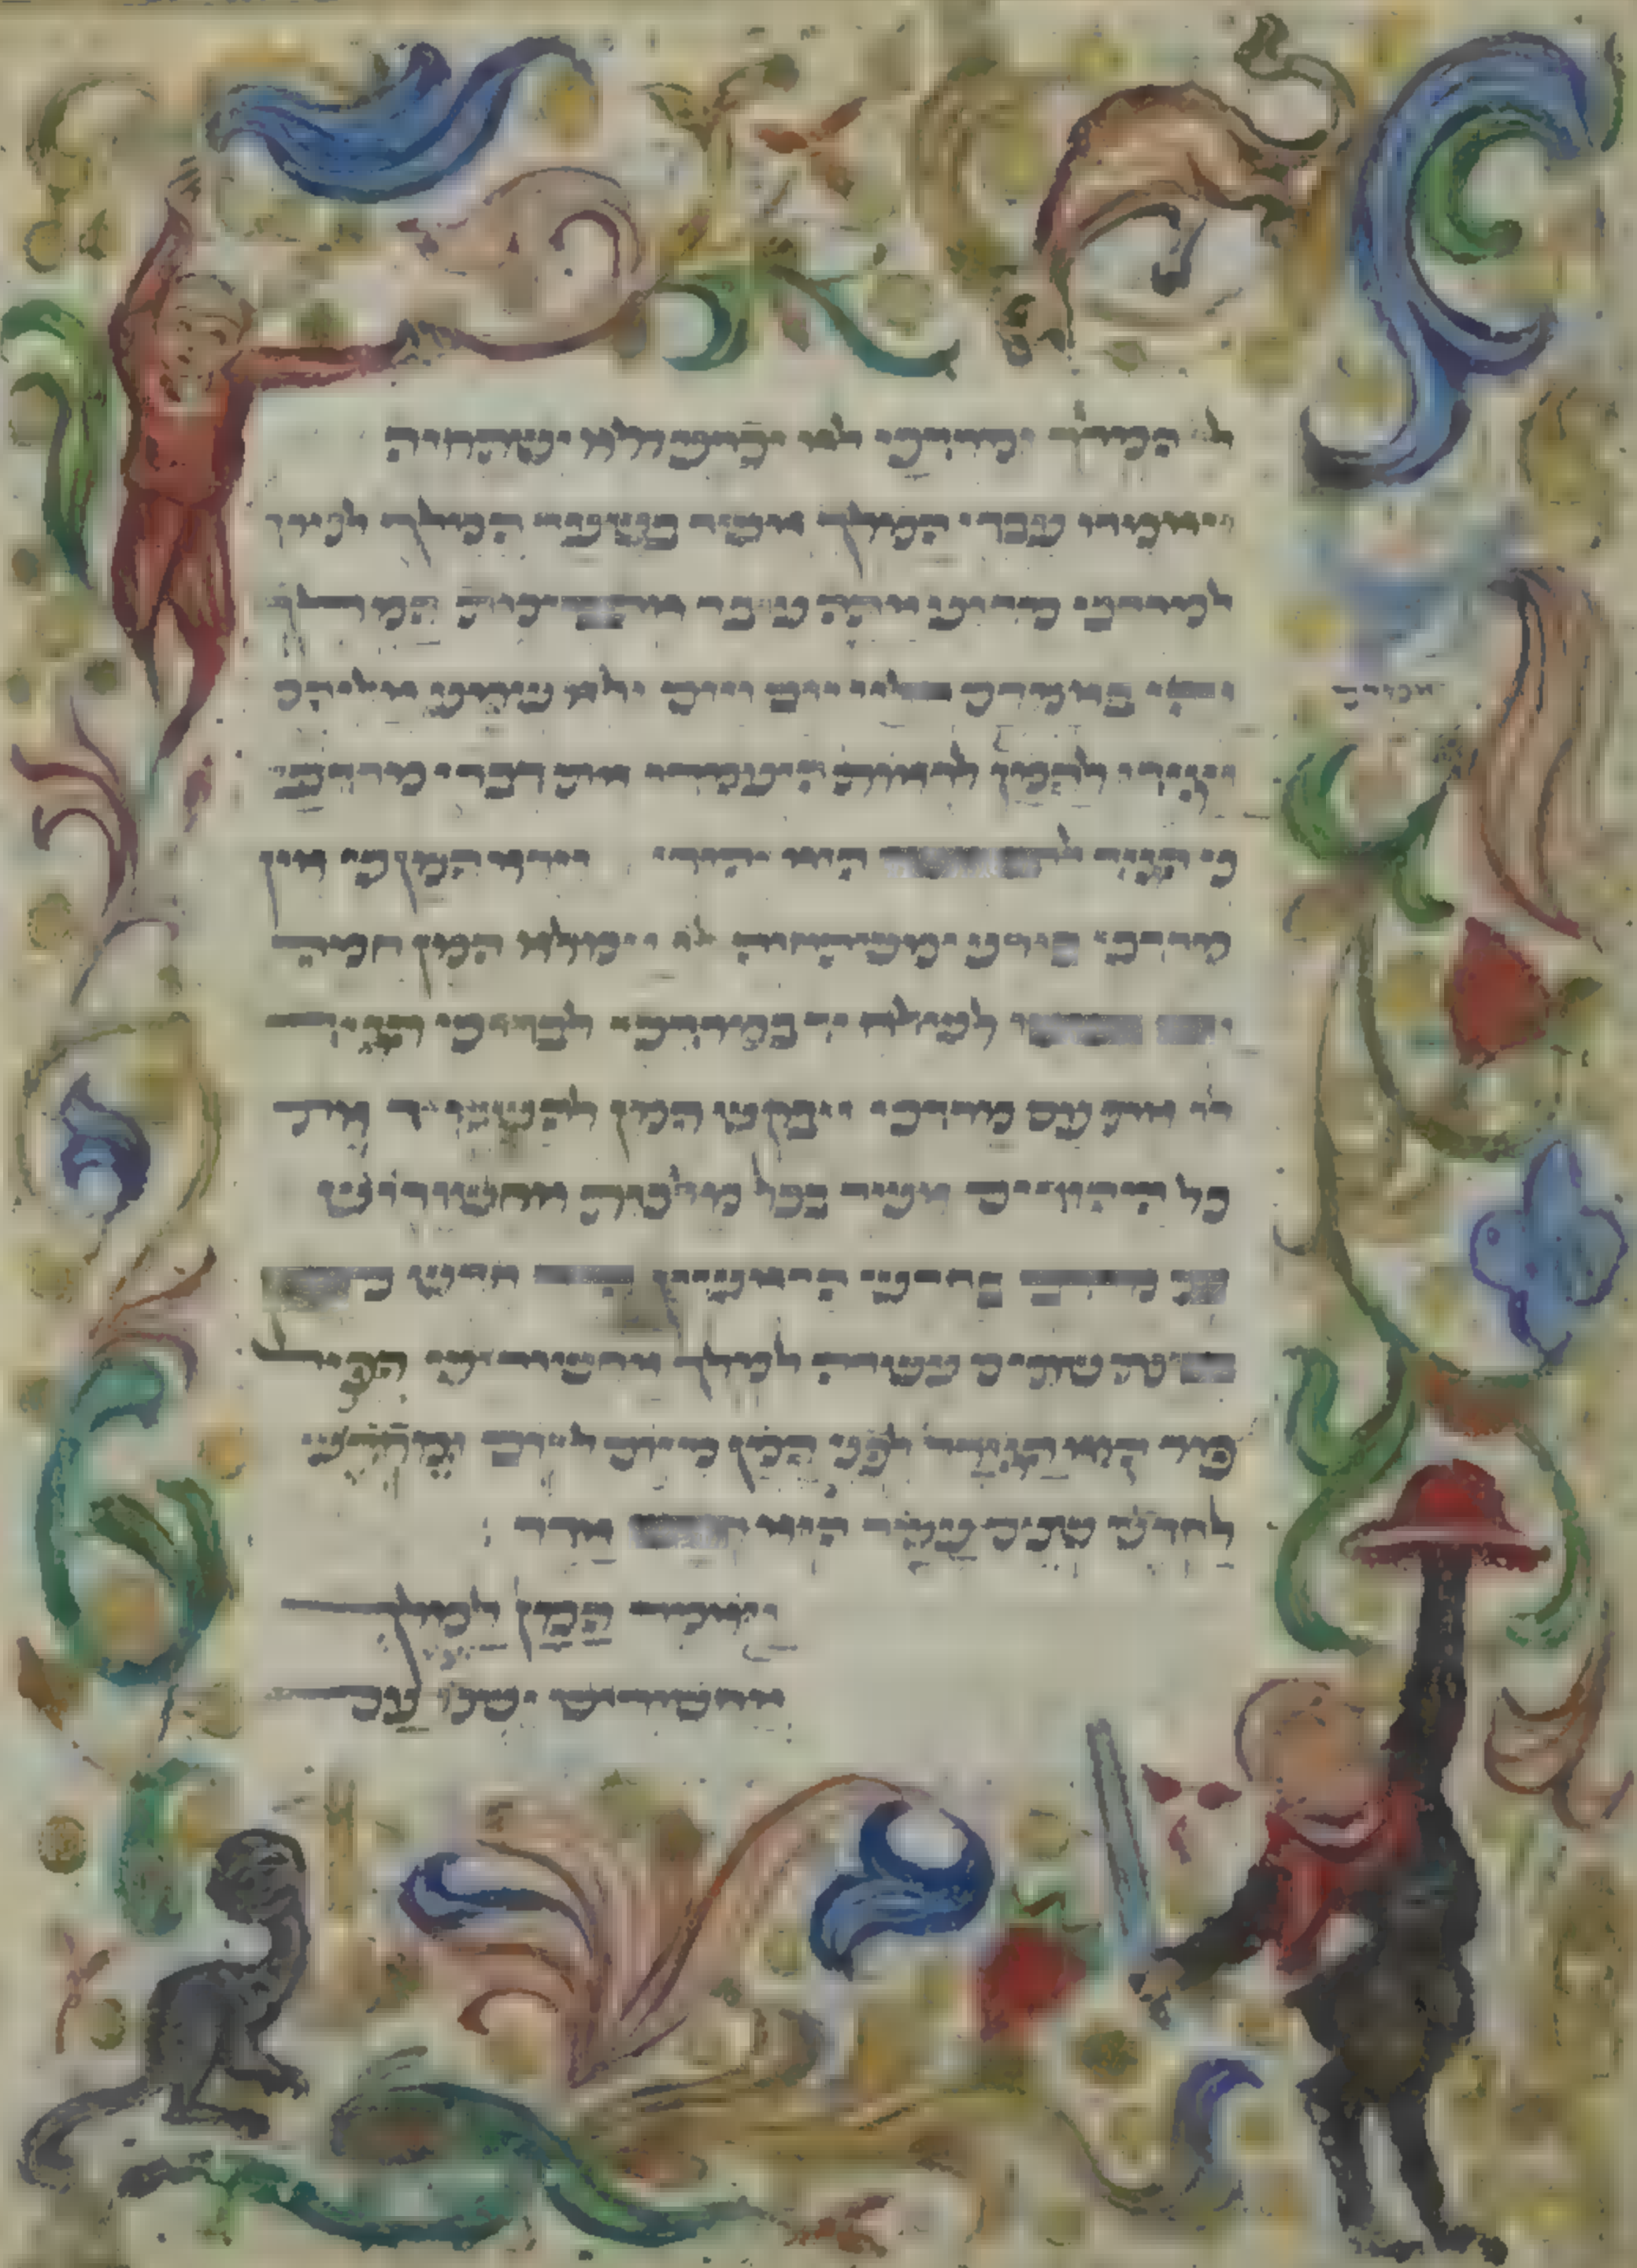 לו המלך ומרדכי לא יכרע ולא ישתחוה
ויאמרו עבדי המלך אשר בשער המלך
למרדכי מדוע אתה עובר המלך
ויהי באמרם אליו יום ויום ולא שמע אליהם
ויגידו להמן לראות היעמדו את דברי מרדכי
כי הגיד הוא יהודי וירא המן כי אין
מרדכי כורע ומשתחוה לו וימלא המן חמה
לשלח יד במרדכי לבדו כי הגידו
לו את עם מרדכי ויבקש המן להשמיד את
כל היהודים אשר בכל מלכות אחשורוש
בחדש הראשון חדש
שתים עשרה למלך אחשורוש הפיל
פור הוא הגורל לפני המן מיום ליום ומחדש
לחדש שנים עשר הוא אדר :
ויאמר המן למלך
אחשורוש ישנו עם